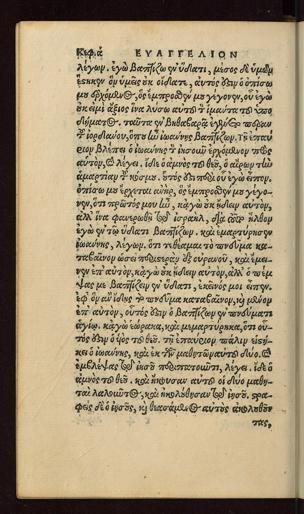 Κεφ. ά ΕΥΑΓΓΕΛΙΟΝ
λέγων. ἐγὼ βαπτίζω ἐν ὕδατι, μέσος δὲ ὑμῶν
ἕστηκεν ὃν ὑμεῖς οὐκ οἴδατε, αὐτός ἐστιν ὁ ὀπίσω
μου ἐρχόμενος, ὃς ἔμπροσθέν μου γέγονεν, οὗ ἐγὼ
οὐκ εἰμὶ ἄξιος ἵνα λύσω αὐτοῦ τὸν ἱμάντα τοῦ ὑπο
δήματος. ταῦτα ἐν Βηθαβαρᾷ ἐγένετο πέραν
τοῦ ἰορδάνου, ὅπου ἦν ἰωάννης βαπτίζων. Τῇ ἐπαύ
ριον βλέπει ὁ ἰωάννης τὸν ἰησοῦν ἐρχόμενον πρὸς
αὐτὸν, καὶ λέγει, ἴδε ὁ ἀμνὸς τοῦ θεοῦ, ὁ αἴρων τὴν
ἁμαρτίαν τοῦ κόσμου. οὗτός ἐστι περὶ οὗ ἐγὼ εἶπον,
ὀπίσω μου ἔρχεται ἀνὴρ, ὃς ἔμπροσθέν μου γέγο
νεν, ὅτι πρῶτός μου ἦν, κἀγὼ οὐκ ᾔδειν αὐτὸν,
ἀλλ ἵνα φανερωθῇ τῷ ἰσραὴλ, διὰ τοῦτο ἦλθον
ἐγὼ ἐν τῷ ὕδατι βαπτίζων. καὶ ἐμαρτύρησεν
ἰωάννης, λέγων, ὅτι τεθέαμαι τὸ πνεῦμα κα
ταβαῖνον ὡσεὶ περιστερὰν ἐξ οὐρανοῦ, καὶ ἔμει
νεν ἐπ αὐτὸν, κἀγὼ οὐκ ᾔδειν αὐτὸν, ἀλλ ὁ πέμ
ψας με βαπτίζειν ἐν ὕδατι, ἐκεῖνός μοι εἶπεν.
ἐφ ὃν ἂν ἴδῃς τὸ πνεῦμα καταβαῖνον, καὶ μένον
ἐπ αὐτὸν, οὗτός ἐστιν ὁ βαπτίζων ἐν πνεύματι
ἁγίῳ. κἀγὼ ἑώρακα, καὶ μεμαρτύρηκα, ὅτι οὗ
τός ἐστιν ὁ υἱὸς τοῦ θεοῦ. τῇ ἐπαύριον πάλιν εἱστή
κει ὁ ἰωάννης, καὶ ἐκ τῶν μαθητῶν αὐτοῦ δύο. καὶ
ἐμβλέψας τῷ ἰησοῦ περιπατοῦντι, λέγει. ἴδε ὁ
ἀμνὸς τοῦ θεοῦ. καὶ ἤκουσαν αὐτοῦ οἱ δύο μαθη
ταὶ λαλοῦντος. καὶ ἠκολούθησαν τῷ ἰησοῦ, στρα
φεὶς δὲ ὁ ἰησοῦς, καὶ θεασάμενος αὐτοὺς ἀκολουθοῦν
τας,